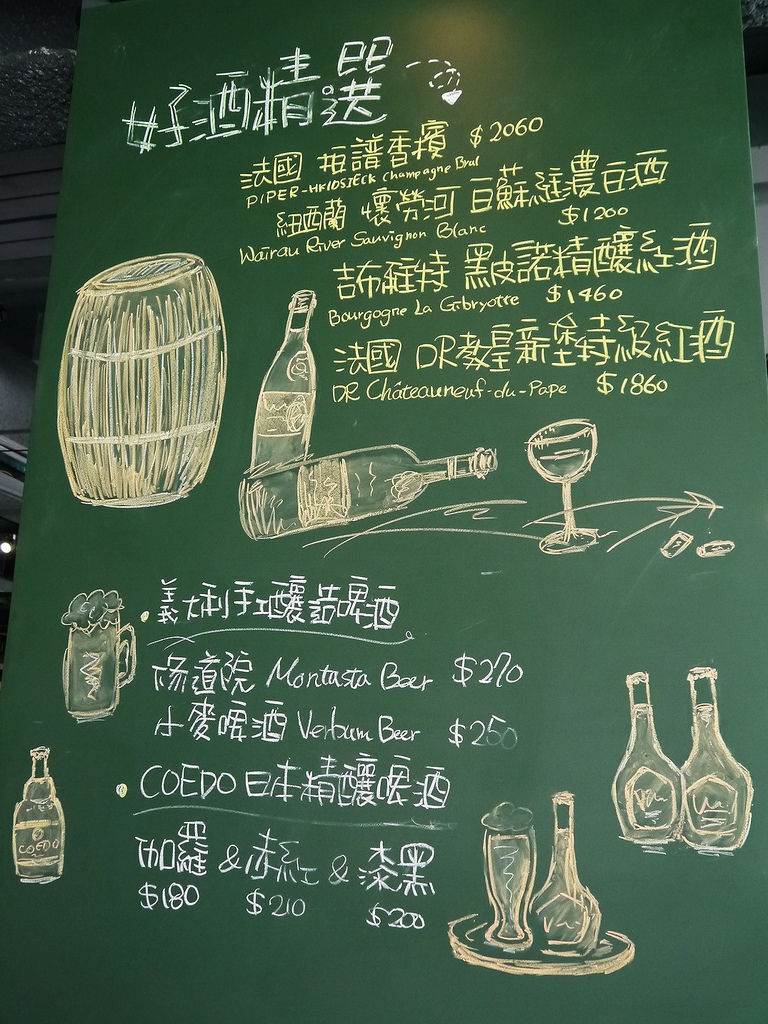 好酒精選
法國 拒譜香檳 $2060
PIPER-HKIDSIECK Champagne Brut
紐西蘭 懷勞河 白蘇維濃白酒
Wairau River Sauvignon Blanc $1200
吉布羅特 黑皮諾精釀紅酒
Bourgogne La Gibryotte $1460
法國 DR教皇新堡特級紅酒
DR Châteauneuf-du-Pape $1860
義大利手工釀造啤酒
修道院 Montasta Beer $270
小麥啤酒 Verbum Beer $250
COEDO 日本精釀啤酒
伽羅 & 赤紅 & 漆黑
$180 $210 $200
COEDO